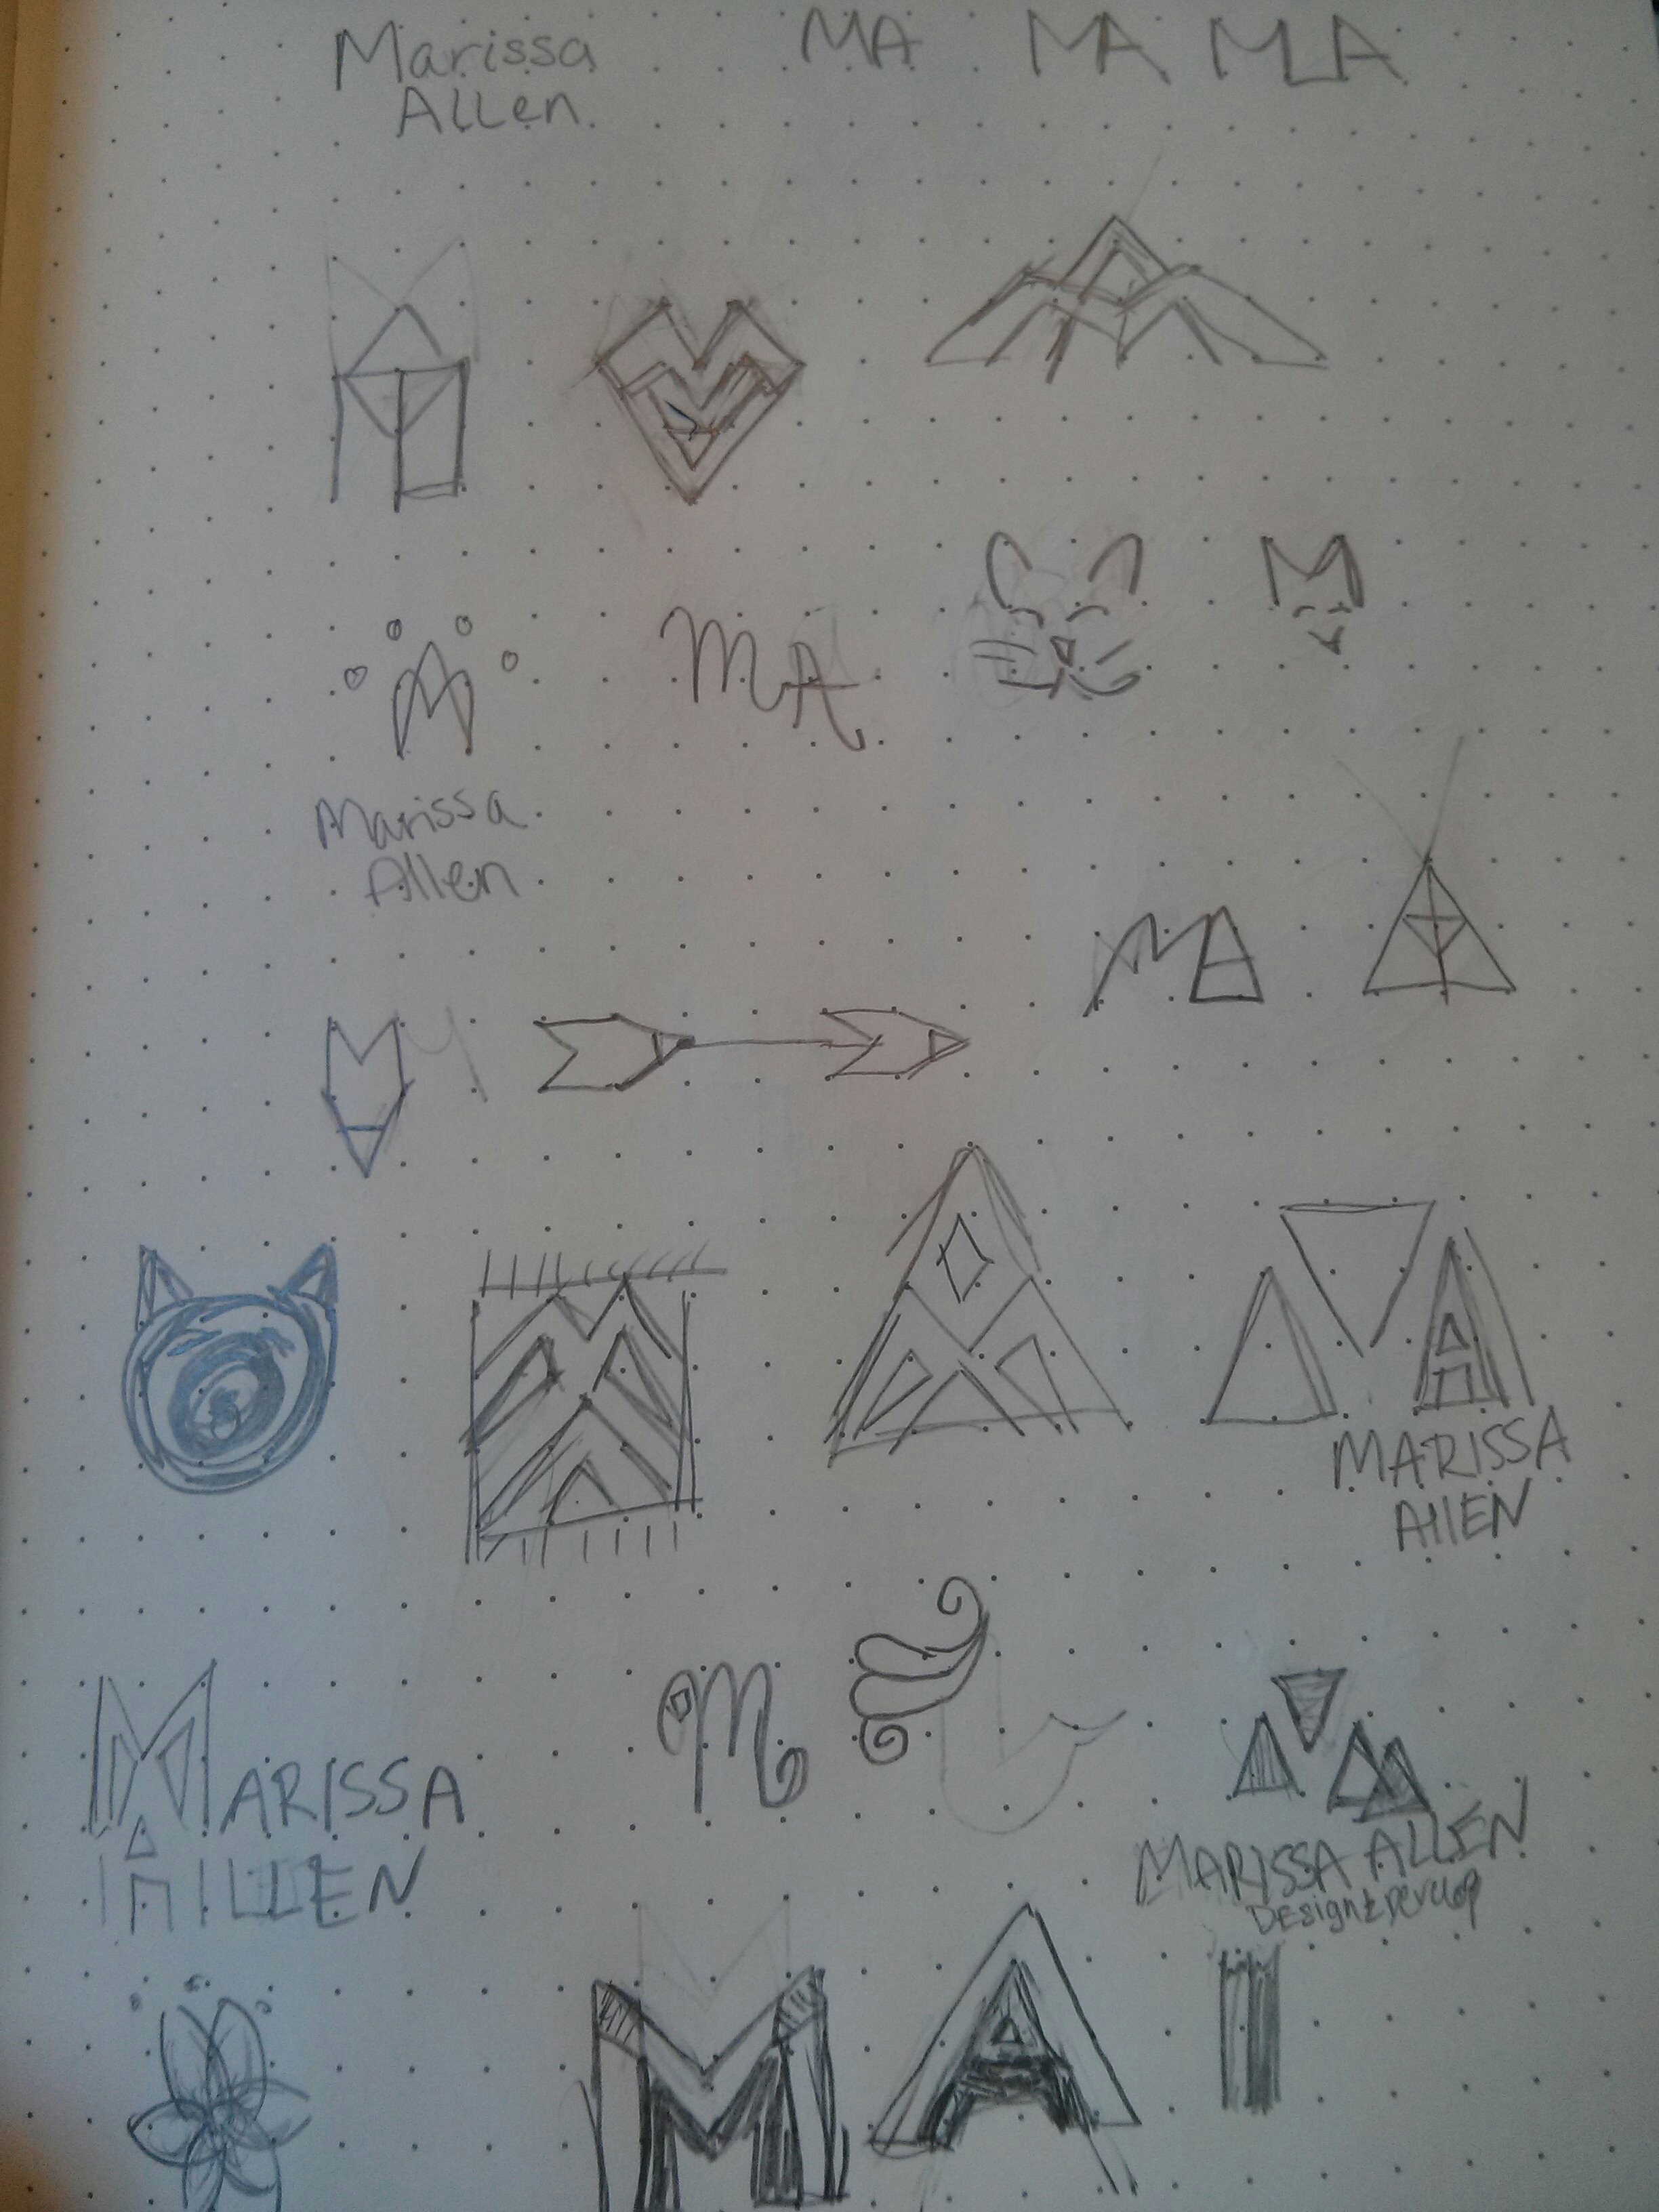 Marissa
Allen
MA
MA
MLA
MA
M
Marissa
Allen
MA
MARISSA
AllEN
MARISSA
AllEN
M
MARISSA ALLEN
DEsign & DEVElop
M A